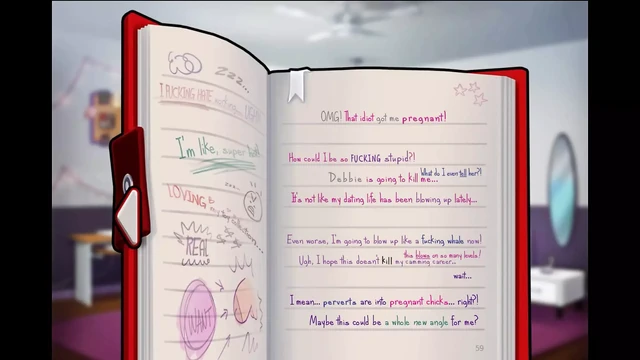 zzz...
I FUCKING HATE
I'm like, super
LOVING
REAL
WANT
OMG! That idiot got me pregnant!
How could I be so FUCKING stupid?!
What do I even tell her?!
Debbie is going to kill me...
It's not like my dating life has been blowing up lately...
Even worse, I'm going to blow up like a fucking whale now!
this blows on so many levels!
Ugh, I hope this doesn't kill my camming career..
wait...
I mean... perverts are into pregnant chicks... right?!
Maybe this could be a whole new angle for me?
59